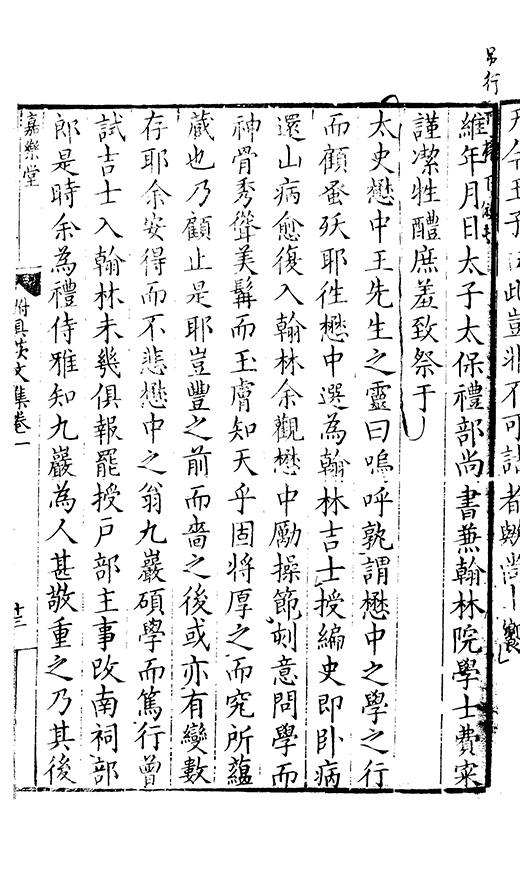 維年月日太子太保禮部尚書兼翰林院學士費寀
謹潔牲醴庶羞致祭于
太史懋中王先生之靈曰嗚呼孰謂懋中之學之行
而顧蚤殀耶徃懋中選為翰林吉士授編史即卧病
還山病愈復入翰林余觀懋中勵操節刻意問學而
神骨秀聳美髯而玉膚知天乎固將厚之而究所蘊
蔵也乃顧止是耶豈豐之前而嗇之後或亦有變數
存耶余安得而不悲懋中之翁九巖碩學而篤行曾
試吉士入翰林未幾俱報罷授戶部主事改南祠部
郎是時余為禮侍雅知九巖為人甚敬重之乃其後
嘉樂堂
文集卷一
十三